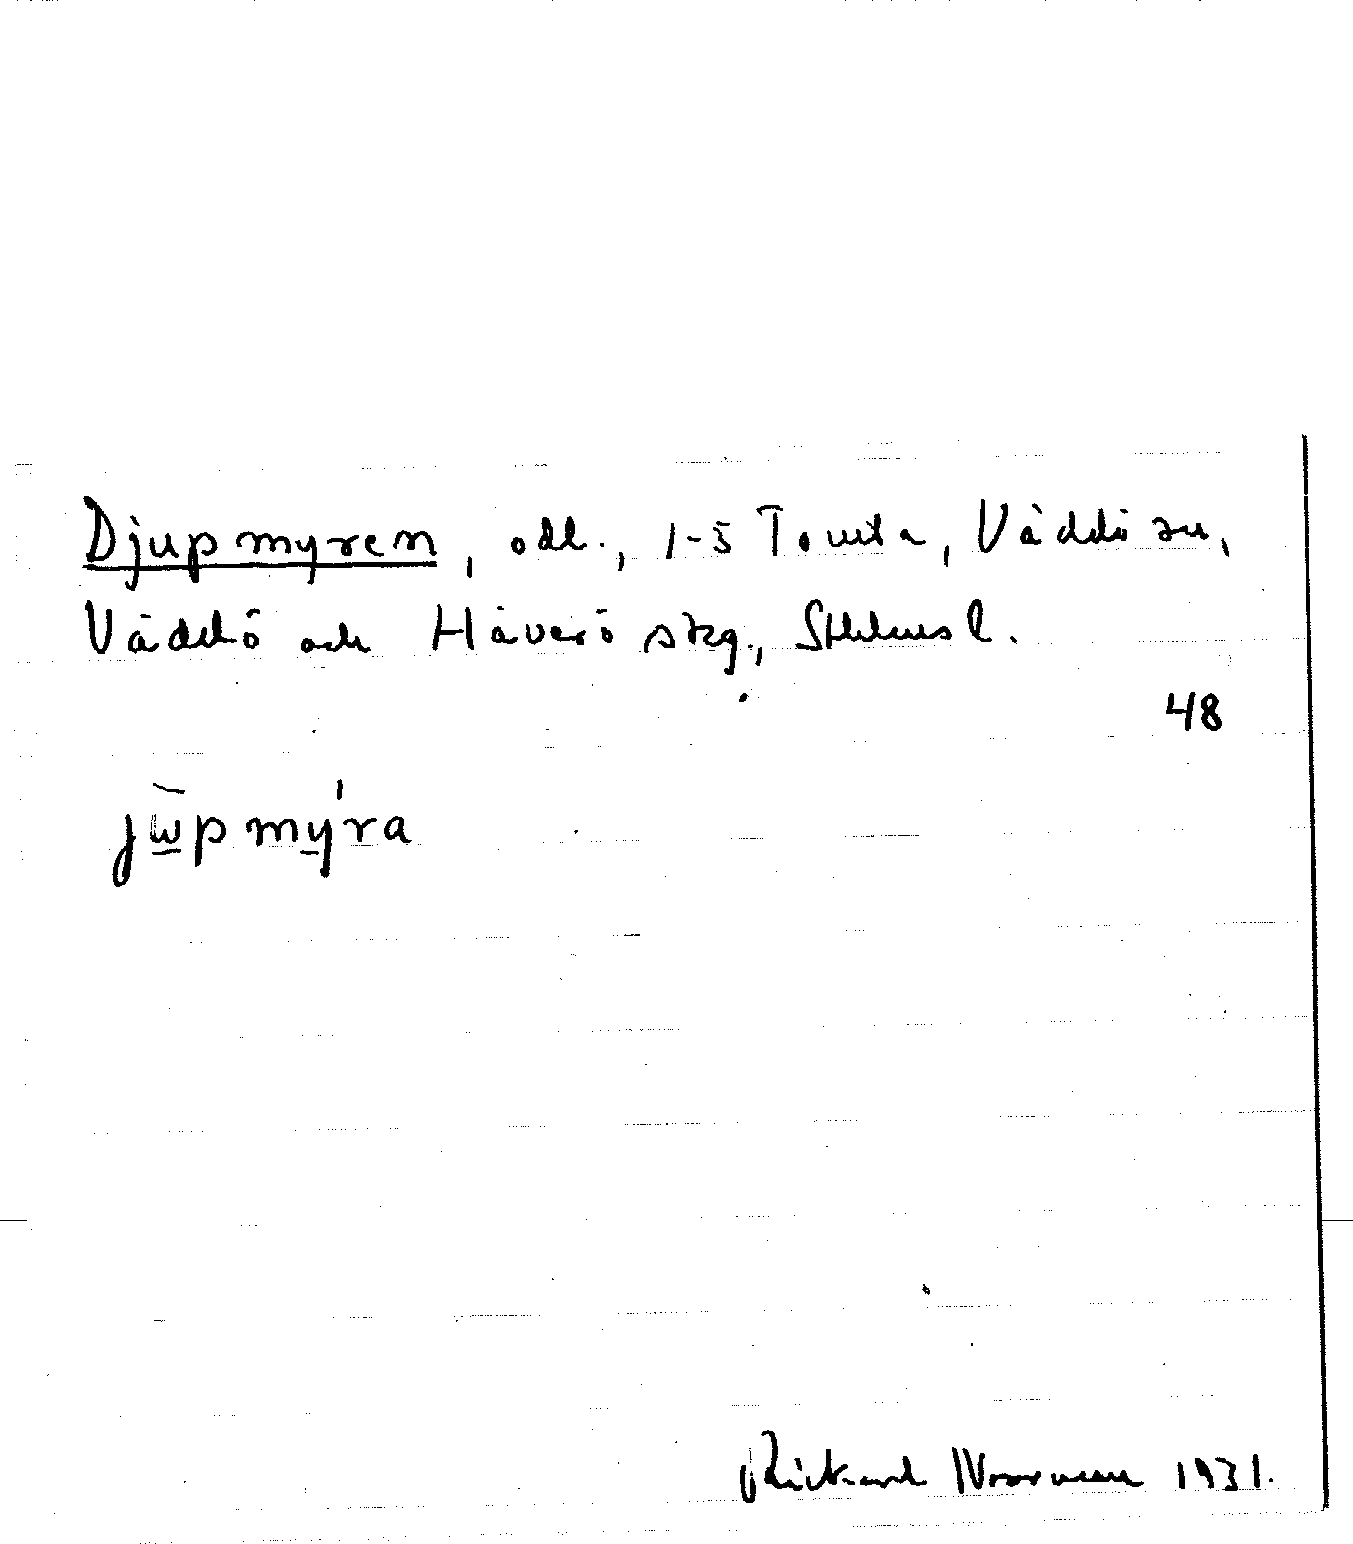 Djupmyren, odl., 1-5 Tomta, Väddö sn,
Väddö och Häverö skg., Sthlms l.
48
jùpmýra
Rickard Norrman 1931.